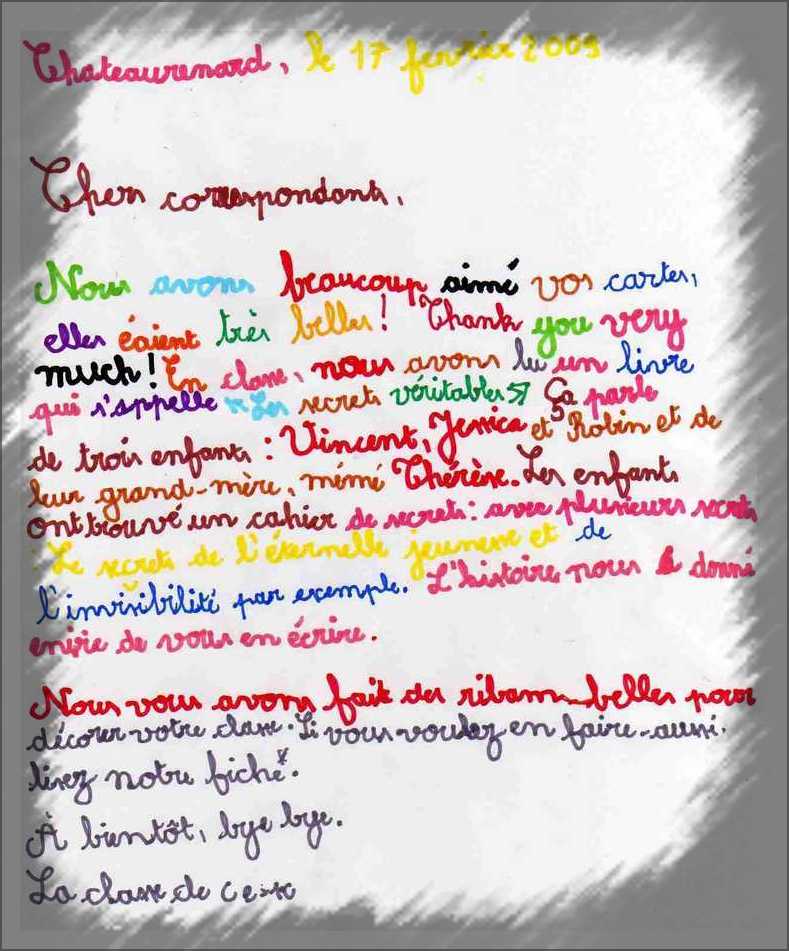 Chateaurenard, le 17 fevrier 2009
Chers correspondants,
Nous avons beaucoup aimé vos cartes,
elles éaient très belles! Thank you very
much! En classe, nous avons lu un livre
qui s'appelle «Les secrets véritables» Ça parle
de trois enfants : Vincent, Jessica et Robin et de
leur grand-mère, mémé Thérèse. Les enfants
ont trouvé un cahier de secrets : avec plusieurs secrets
: Le secrets de l'éternelle jeunesse et de
l'invisibilité par exemple. L'histoire nous à donné
envie de vous en écrire.
Nous vous avons fait des ribam-belles pour
décorer votre classe. Si vous voulez en faire aussi,
lisez notre fiche*.
À bientôt, bye bye.
La classe de